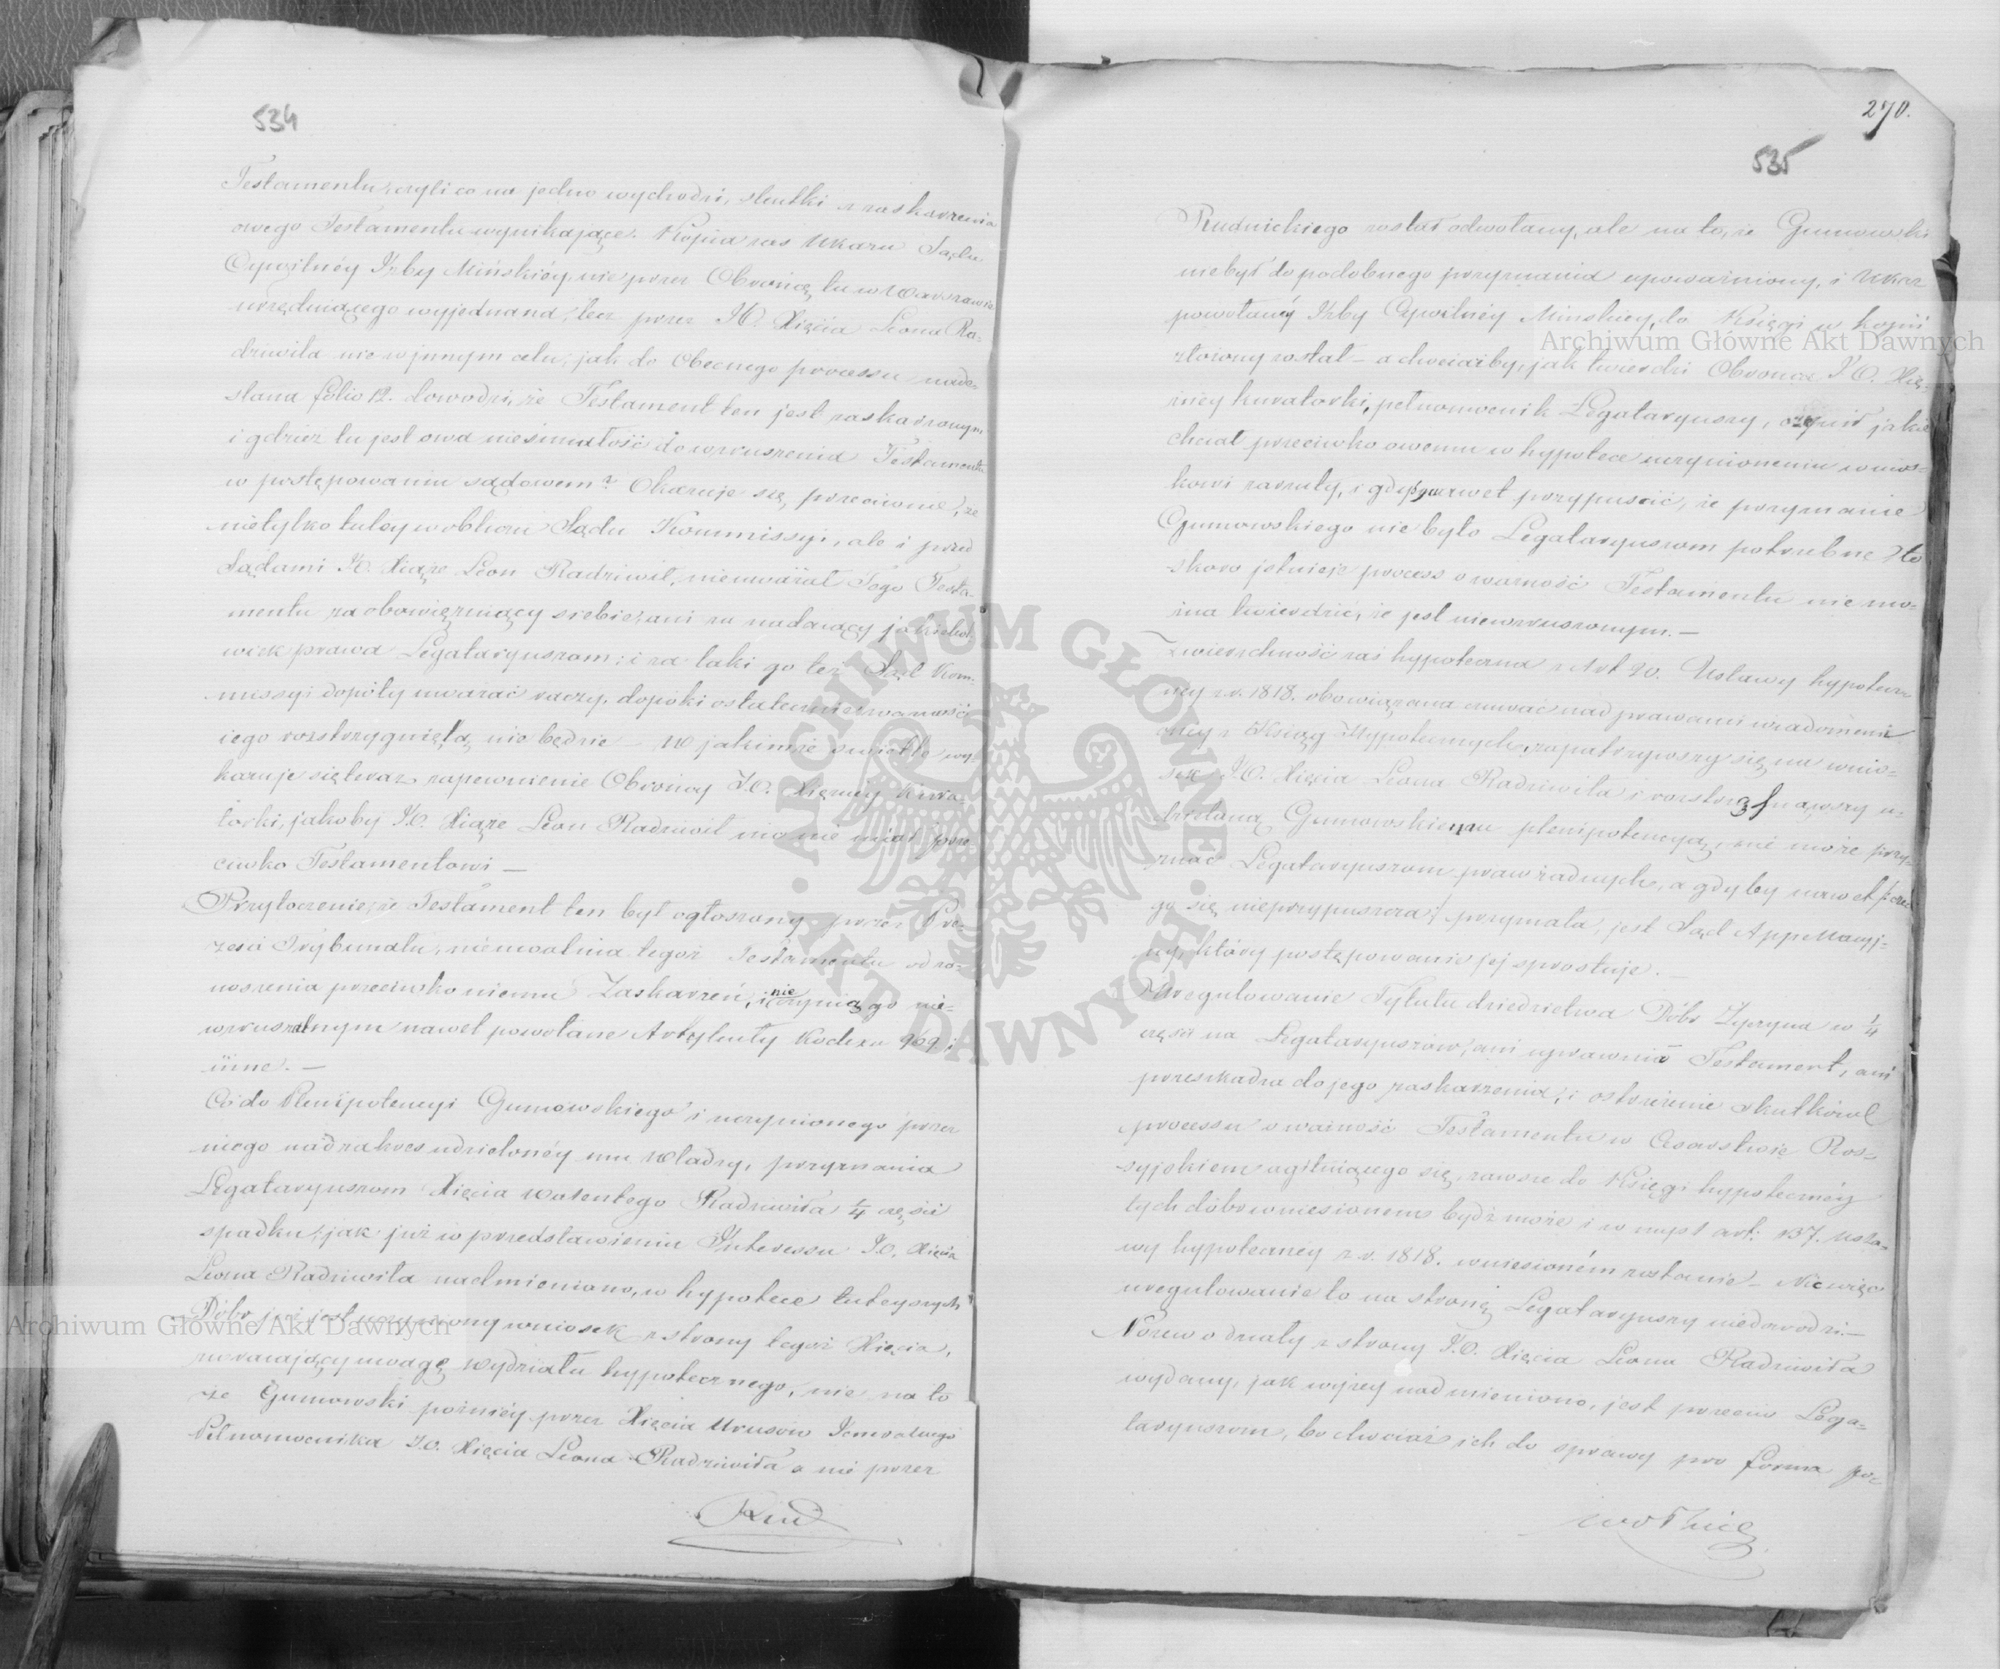 534
Testamentu, czyli co na jedno wychodzi, skutki z zaskarzenia
owego Testamentu wynikające. Kopia zas Ukazu Sądu
Cywilnéy Izby Mińskiéy, nie przez Obrońcę tu w Warszawie
urzęduiącego wyjednana, lecz przez JO. Xięcia Leona Ra-
dziwiła nie w innym celu, jak do Obecnego processu nade-
słana folio 12. dowodzi, że Testament ten jest zaskarzonym
i gdzież tu jest owa nieśmiałość do wzruszenia Testamentu
w postępowaniu sądowem? Okazuje się przeciwnie, że
nietylko tutéy w obliczu Sądu Kommissyi, ale i przed
Sądami JO. Xiąże Leon Radziwił, nieuważał Tego Testa-
mentu za obowięzuiący siebie, ani za nadaiący jakiekol-
wiek prawa Legataryuszom; i za taki go też Sąd Kom-
missyi dopóty uważać raczy, dopóki ostatecznie ważność
iego rozstrzygniętą nie będzie – W jakimże świetle wy-
kazuje się teraz zapewnienie Obrońcy J.O. Xiężnéy Kura-
torki, jakoby J.O. Xiąże Leon Radziwił nic nie miał prze-
ciwko Testamentowi –
Przytoczenie, że Testament ten był ogłoszony przez Pre-
zesa Trybunału, nieuwalnia tegoż Testamentu od za-
noszenia przeciwko niemu Zaskarzeń, i nie czynią go nie-
wzruszalnym nawet powołane Artykuły Kodexu 969 i
inne. –
Co do Plenipotencyi Gumowskiego i uczynionego przez
niego nad zakres udzielonéy mu Władzy, przyznania
Legataryuszom Xięcia Walentego Radziwiła ¼ części
spadku, jak już w przedstawieniu Interessu J.O. Xięcia
Leona Radziwiła nadmieniono, w hypotece tuteyszych
Dóbr już jest uczyniony wniosek z strony tegoż Xięcia,
zwracający uwagę Wydziału hypotecznego, nie na to
że Gumowski poźniéy przez Xięcia Urusow Jeneralnego
Pełnomocnika J.O. Xięcia Leona Radziwiła a nie przez
270.
535
Rudnickiego został odwołany, ale na to, że Gumowski
niebył do podobnego przyznania upoważniony, i Ukaz
powołanéy Izby Cywilnéy Mińskiey, do Księgi w kopii
złożony został – a chociażby, jak twierdzi Obrońca J.O. Xię-
żnéy kuratorki, pełnomocnik Legataryuszy, czynił jakie
chciał przeciwko owemu w hypotece uczynionemu wnios-
kowi zarzuty, i gdyby nawet przypuścić, że przyznanie
Gumowskiego nie było Legataryuszom potrzebne, to
skoro istnieje process o ważność Testamentu nie mo-
żna twierdzić, że jest niewzruszonym. –
Zwierzchność zaś hypoteczna z Art 20. Ustawy hypotecz-
néy z r. 1818. obowięzana czuwać nad prawami wiadomemi
onéy z Xsiąg Hypotecznych, zapatrzywszy się na wnio-
sek J.O. Xięcia Leona Radziwiła i rozstrząsnąwszy u-
dzieloną Gumowskiemu plenipotencyą, nie może przy-
znać Legataryuszom praw żadnych, a gdyby nawet
go się nieprzypuszcza przyznała, jest Sąd Appellacyj-
ny, który postępowanie jej sprostuje. –
Uregulowanie Tytułu dziedzictwa Dóbr Zegrzyna w ¼
części na Legataryuszów, ani uprawnia Testament, ani
przeszkadza do jego zaskarzenia; i ostrzeżenie skutków
processu o ważność Testamentu w Cesarstwie Ros-
syjskiem agituiącego się, zawsze do Księgi hypotecznéy
tych dóbr wniesionem bydź może i w myśl art: 137. Usta-
wy hypotecznéy z r. 1818. wniesioném zostanie – Nic więc
uregulowanie to na stronę Legataryuszy niedowodzi. –
Pozew o działy z strony J.O. Xięcia Leona Radziwiła
wydany, jak wyżey nadmieniono, jest przeciw Lega-
taryuszom, bo chociaż ich do sprawy pro forma po-
wołuię